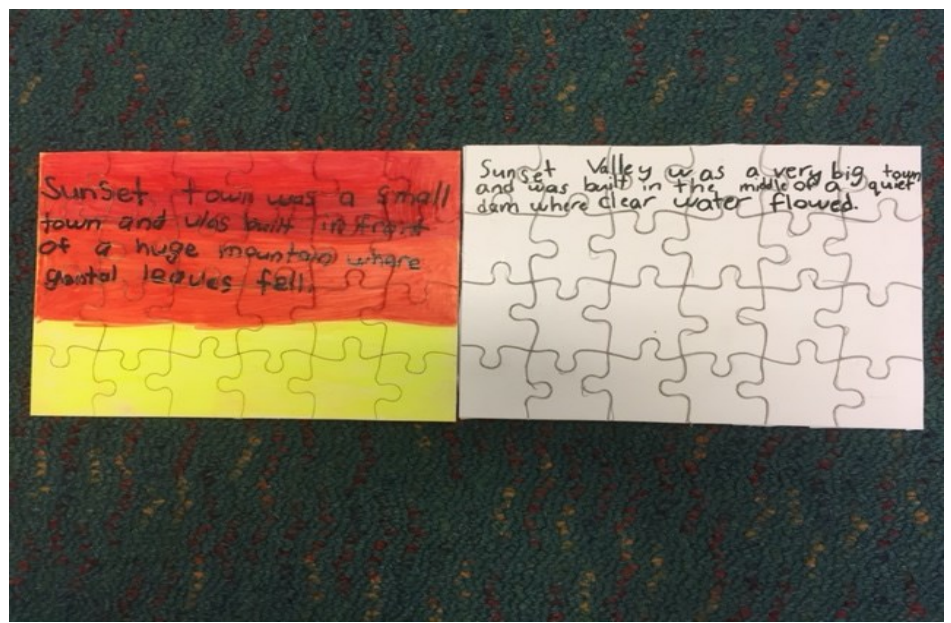 Sunset town was a small
town and was built in front
of a huge mountain where
leaves fell.
Sunset Valley was a very big town
and was built in the middle of a quiet
dam where clear water flowed.